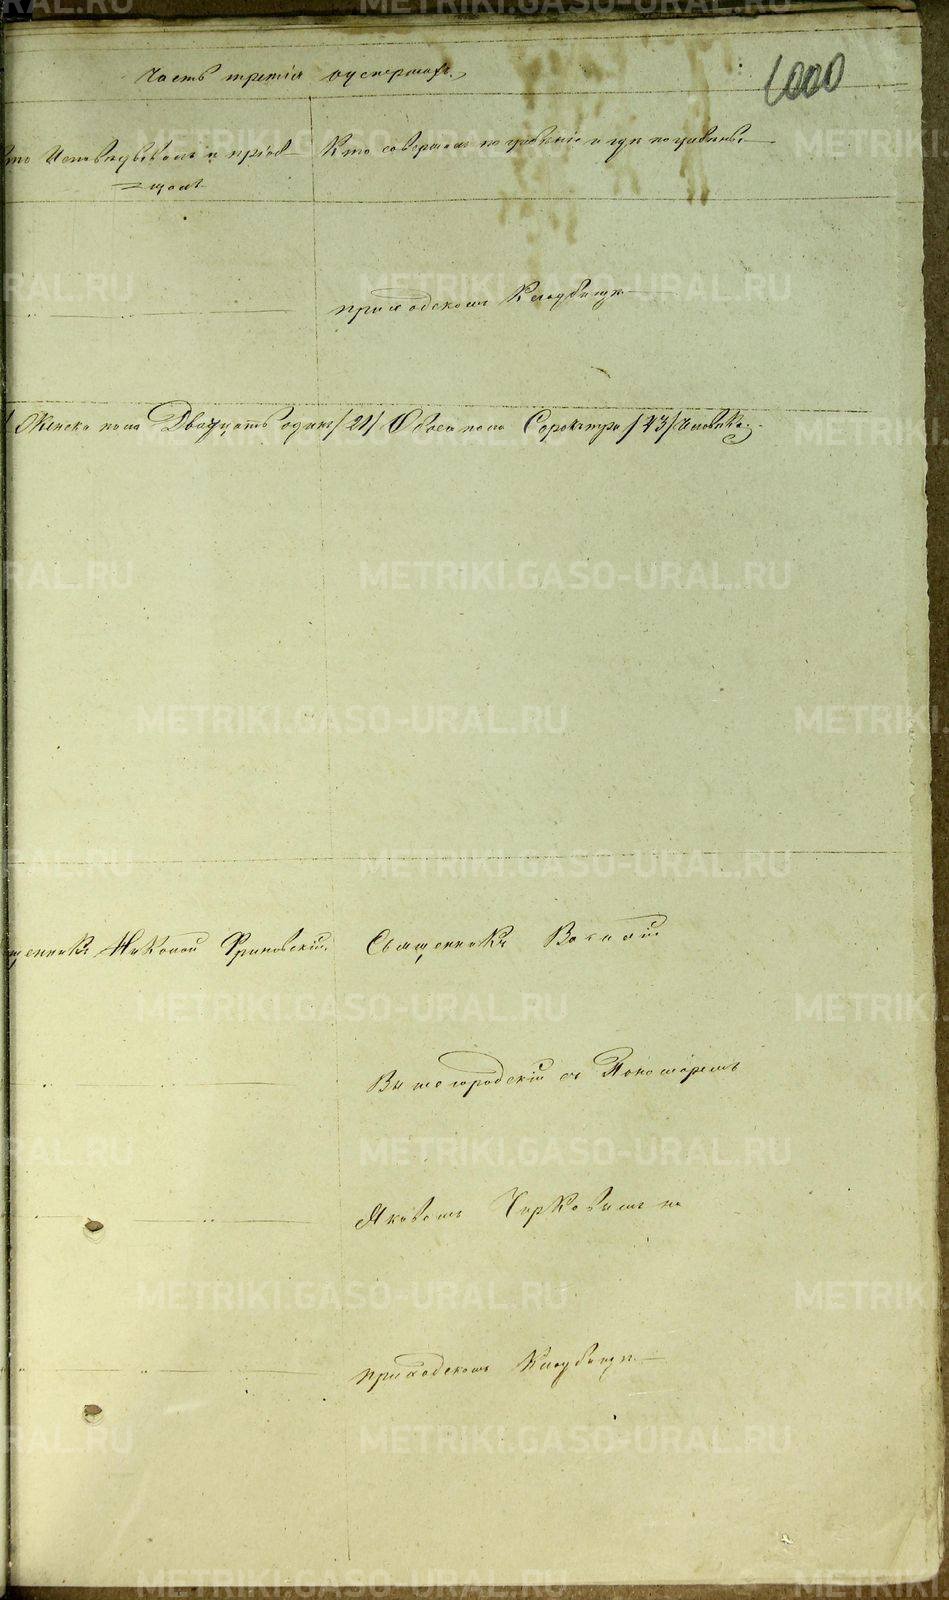 Часть третія о умершихъ.
1000
Кто Исповѣдывалъ и пріоб-
=щалъ
Кто совершалъ погребеніе и гдѣ погребены.
приходскомъ Кладбищѣ
Женска пола Двадцать одинъ /21/ Обоего пола Сорокътри /43/ человѣка.
щенникъ Николай
Священникъ
Вышегородскій съ Пономаремъ
Яковомъ на
приходскомъ Кладбищѣ.
METRIKI.GASO-URAL.RU